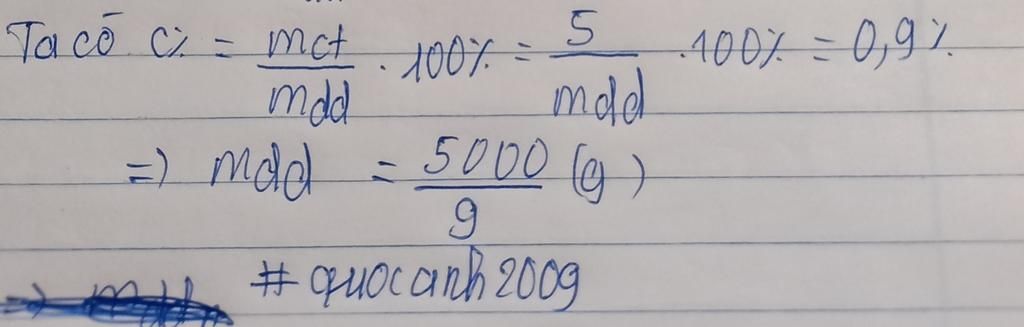 Ta có C% = mct/mdd . 100% = 5/mdd . 100% = 0,9%
=> mdd = 5000/9 (g)
# quocanh2009